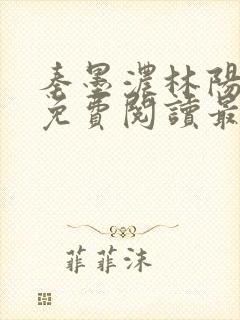 秦墨濃林陽
免費閱讀最
菲菲沫